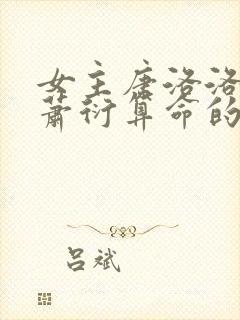 女主唐洛洛
萧衍算命的
吕斌